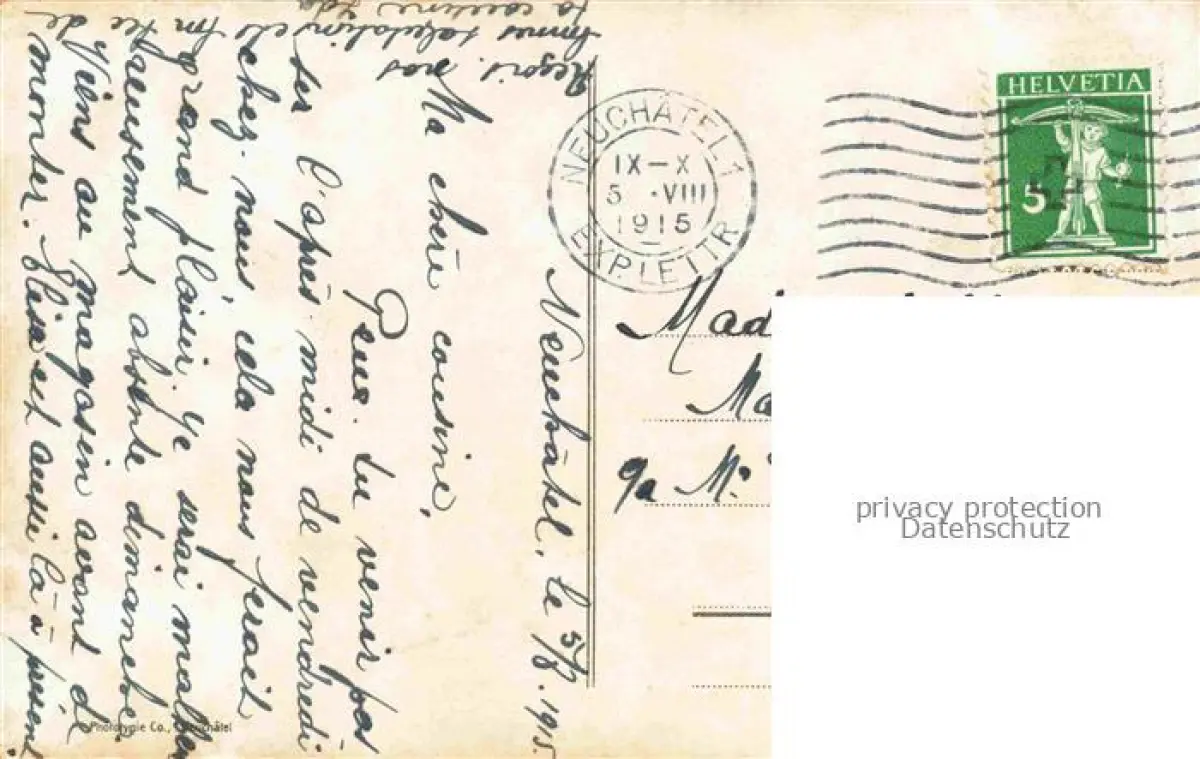 Neuchâtel, le 5/8. 1915.
Ma chère cousine,
Peux-tu venir pas
ser l'après-midi de vendredi
chez-nous, cela nous ferait
grand plaisir. Je serai malheu
reusement absente dimanche
Viens au magasin avant de
monter. Elisa est aussi là à présent
Reçois nos
bonnes salutations et
ta cousine Ida
HELVETIA
5
NEUCHÂTEL 1
IX–X
5 ·VIII
1915
EXP. LETTR.
Mad
Ma
Mr
privacy protection
Datenschutz
Phototypie Co., Neuchâtel